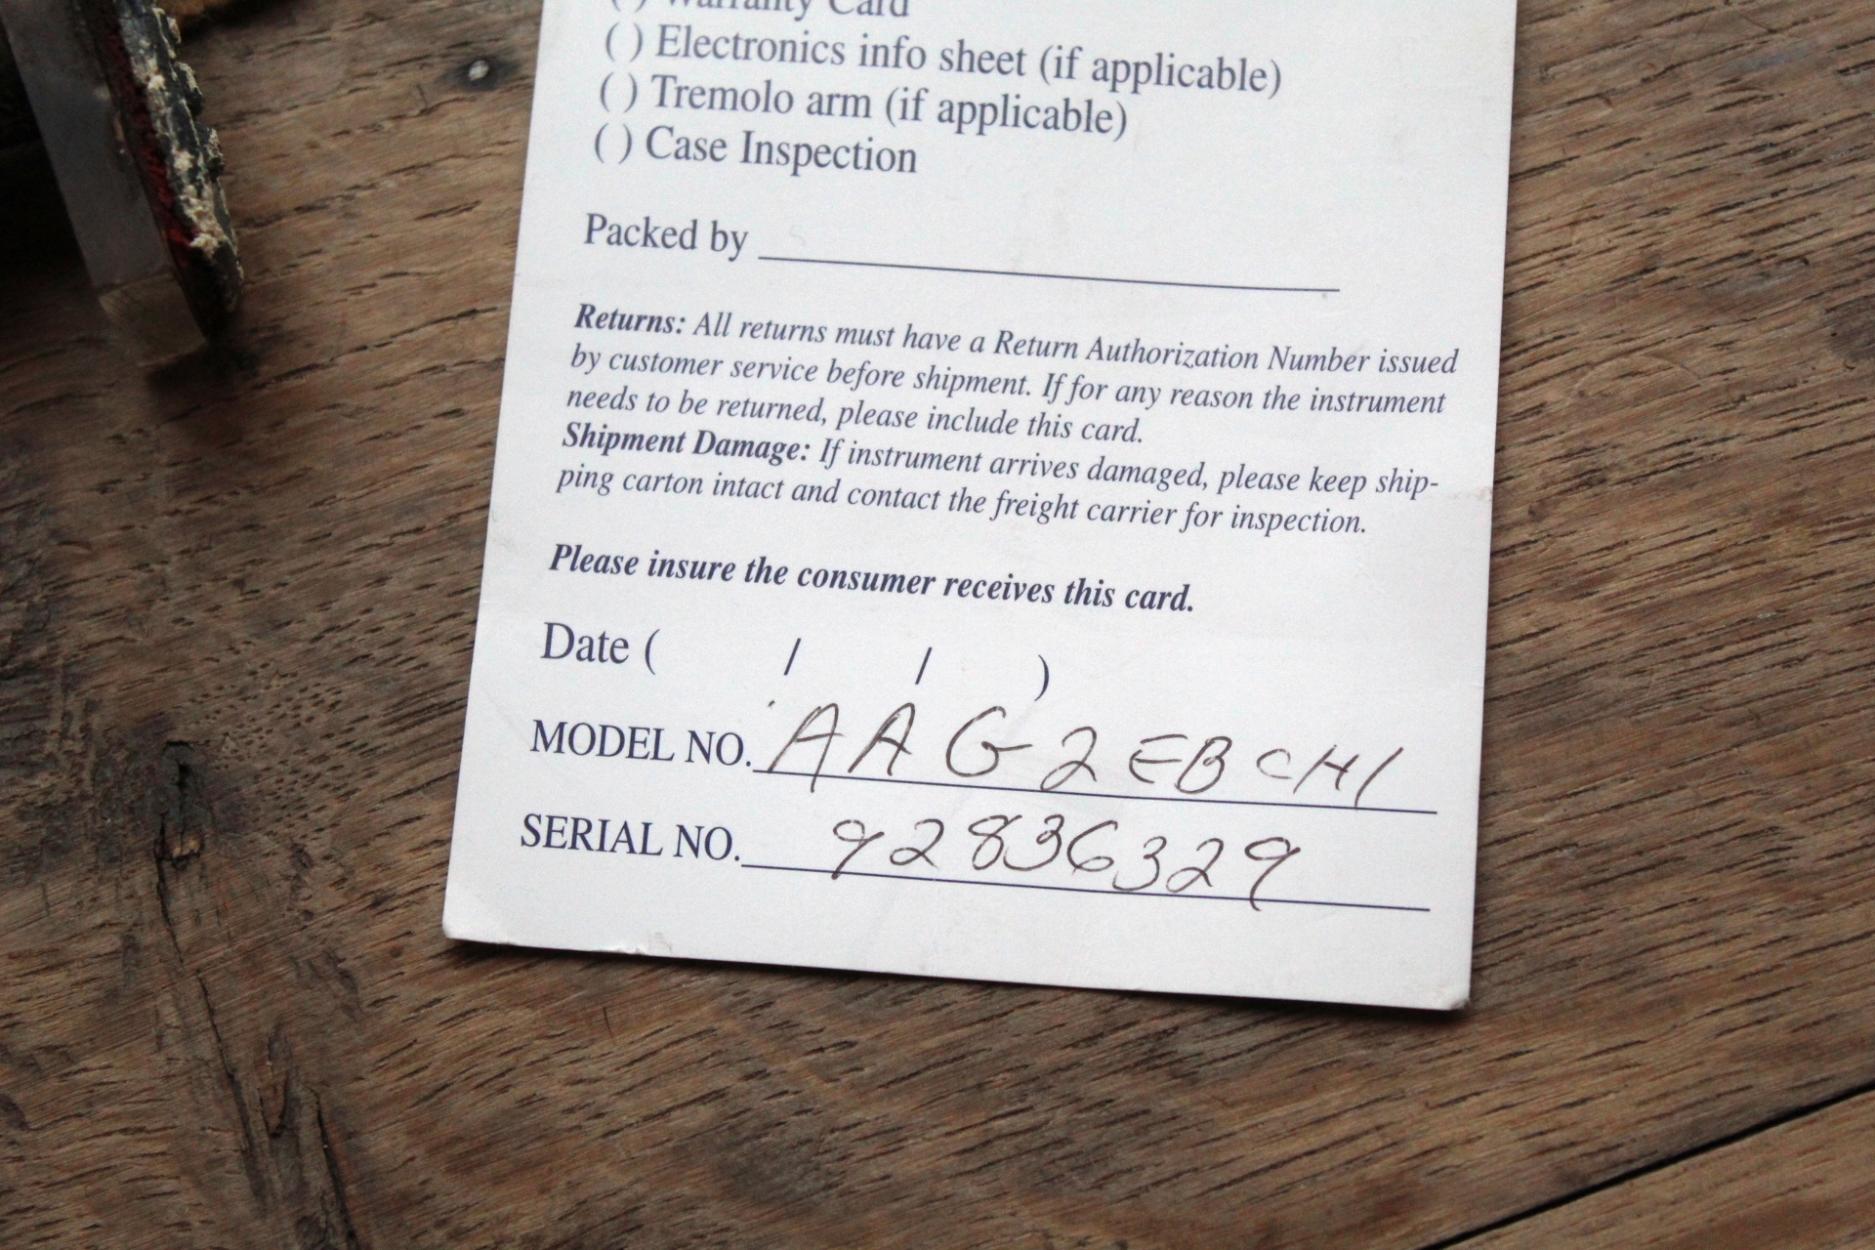 ( ) Warranty Card
( ) Electronics info sheet (if applicable)
( ) Tremolo arm (if applicable)
( ) Case Inspection
Packed by
Returns: All returns must have a Return Authorization Number issued
by customer service before shipment. If for any reason the instrument
needs to be returned, please include this card.
Shipment Damage: If instrument arrives damaged, please keep ship-
ping carton intact and contact the freight carrier for inspection.
Please insure the consumer receives this card.
Date ( / / )
MODEL NO. AAG2EBCH1
SERIAL NO. 92836329